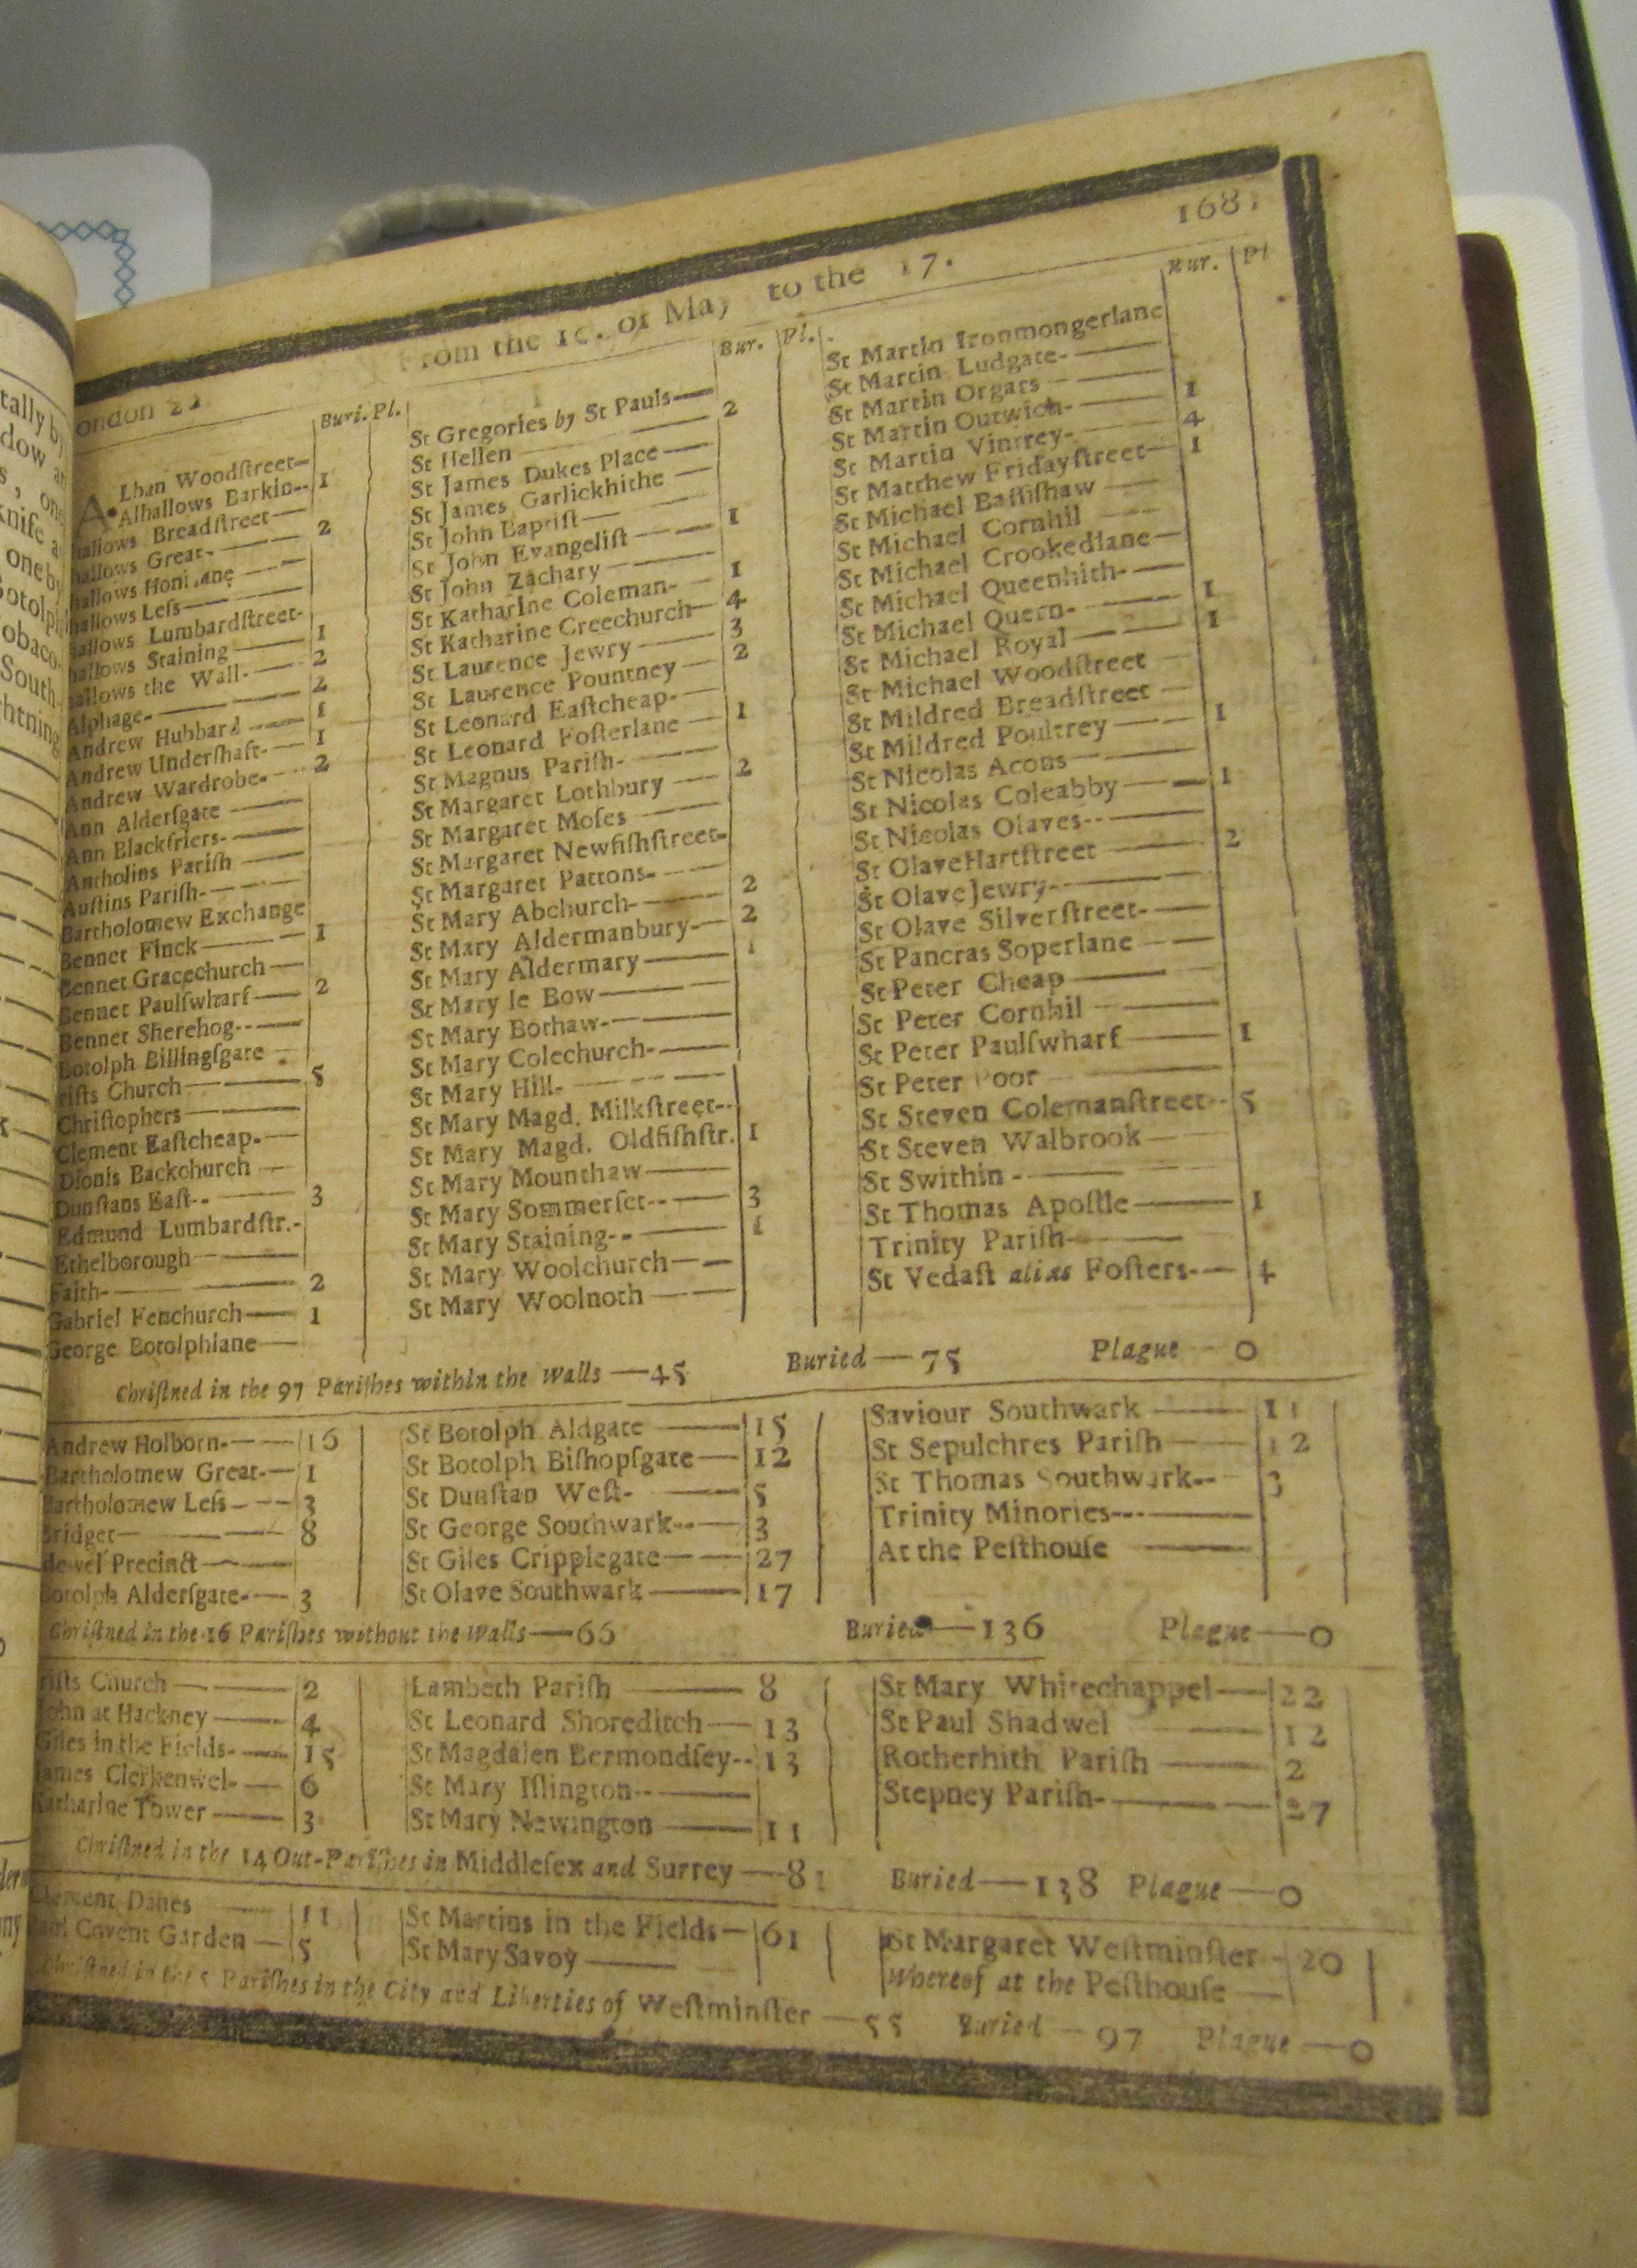 ondon 22
From the 10. of May to the 17.
1681
Buri. Pl.
ALban Woodſtreet
Alhallows Barkin 1
hallows Breadſtreet
hallows Great 2
hallows Honilane
hallows Leſs
hallows Lumbardſtreet
hallows Staining 1
hallows the Wall 2
Alphage 2
Andrew Hubbard 1
Andrew Underſhaft 1
Andrew Wardrobe 2
Ann Alderſgate
Ann Blackfriers
Antholins Pariſh
Auſtins Pariſh
Bartholomew Exchange
Bennet Finck 1
Bennet Gracechurch
Bennet Paulſwharf 2
Bennet Sherehog
Botolph Billingſgate
riſts Church 5
Chriſtophers
Clement Eaſtcheap
Dionis Backchurch
Dunſtans Eaſt 3
Edmund Lumbardſtr.
Ethelborough
Faith 2
Gabriel Fenchurch 1
George Botolphlane
Bur. Pl.
St Gregories by St Pauls
St Hellen 2
St James Dukes Place
St James Garlickhithe
St John Baptiſt
St John Evangeliſt 1
St John Zachary
St Katharine Coleman 1
St Katharine Creechurch 4
St Laurence Jewry 3
St Laurence Pountney 2
St Leonard Eaſtcheap
St Leonard Foſterlane 1
St Magnus Pariſh
St Margaret Lothbury 2
St Margaret Moſes
St Margaret Newfiſhſtreet
St Margaret Pattons
St Mary Abchurch 2
St Mary Aldermanbury 2
St Mary Aldermary 1
St Mary le Bow
St Mary Bothaw
St Mary Colechurch
St Mary Hill
St Mary Magd. Milkſtreet
St Mary Magd. Oldfiſhſtr. 1
St Mary Mounthaw
St Mary Sommerſet 3
St Mary Staining 1
St Mary Woolchurch
St Mary Woolnoth
Bur. Pl
St Martin Ironmongerlane
St Martin Ludgate
St Martin Orgars
St Martin Outwich 1
St Martin Vintrey 4
St Matthew Fridayſtreet 1
St Michael Baſſiſhaw
St Michael Cornhil
St Michael Crookedlane
St Michael Queenhith
St Michael Quern 1
St Michael Royal 1
St Michael Woodſtreet
St Mildred Breadſtreet
St Mildred Poultrey 1
St Nicolas Acons
St Nicolas Coleabby 1
St Nicolas Olaves
St Olave Hartſtreet 2
St Olave Jewry
St Olave Silverſtreet
St Pancras Soperlane
St Peter Cheap
St Peter Cornhil
St Peter Paulſwharf 1
St Peter Poor
St Steven Colemanſtreet 5
St Steven Walbrook
St Swithin
St Thomas Apoſtle 1
Trinity Pariſh
St Vedaſt alias Foſters 4
Chriſtned in the 97 Pariſhes within the Walls — 45 Buried — 75 Plague — 0
Andrew Holborn 16
Bartholomew Great 1
Bartholomew Leſs 3
Bridget 8
dewel Precinct
Botolph Alderſgate 3
St Botolph Aldgate 15
St Botolph Biſhopſgate 12
St Dunſtan Weſt 5
St George Southwark 3
St Giles Cripplegate 27
St Olave Southwark 17
Saviour Southwark 11
St Sepulchres Pariſh 12
St Thomas Southwark 3
Trinity Minories
At the Peſthouſe
Chriſtned in the 16 Pariſhes without the Walls — 66 Buried — 136 Plague — 0
riſts Church 2
John at Hackney 4
Giles in the Fields 15
James Clerkenwel 6
Katharine Tower 3
Lambeth Pariſh 8
St Leonard Shoreditch 13
St Magdalen Bermondſey 13
St Mary Iſlington
St Mary Newington 11
St Mary Whitechappel 22
St Paul Shadwel 12
Rotherhith Pariſh 2
Stepney Pariſh 27
Chriſtned in the 14 Out-Pariſhes in Middleſex and Surrey — 81 Buried — 138 Plague — 0
Clement Danes 11
Paul Covent Garden 5
St Martins in the Fields 61
St Mary Savoy
St Margaret Weſtminſter 20
Whereof at the Peſthouſe
Chriſtned in the 5 Pariſhes in the City and Liberties of Weſtminſter — 55 Buried — 97 Plague — 0